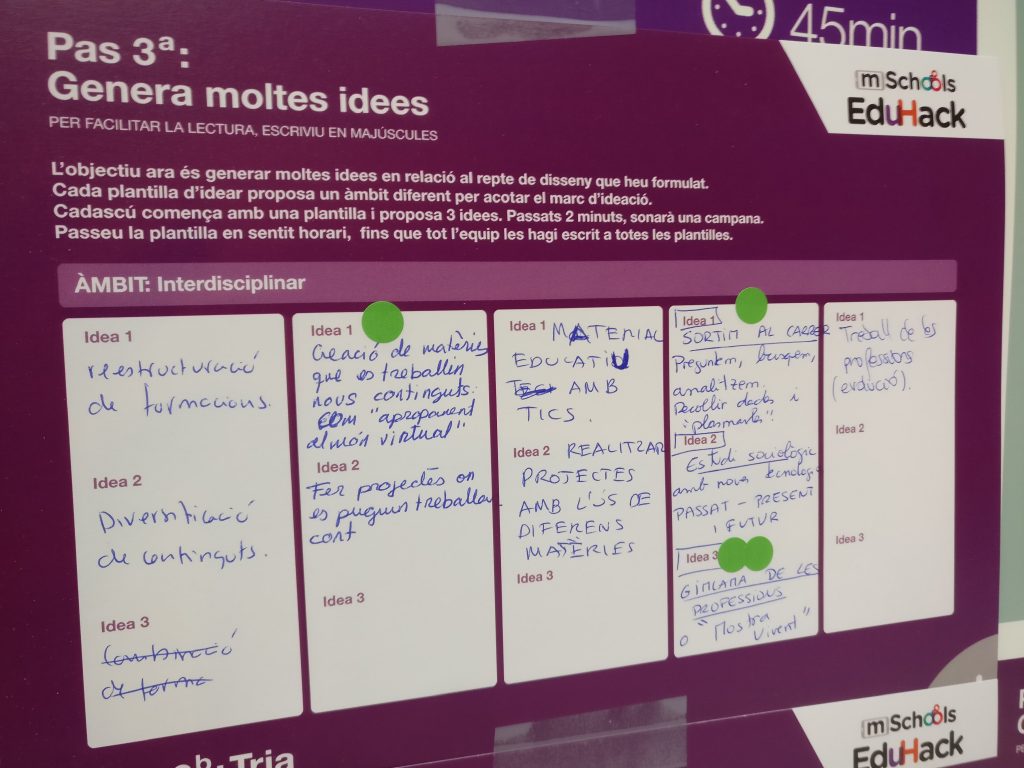 45min
Pas 3ª:
Genera moltes idees
PER FACILITAR LA LECTURA, ESCRIVIU EN MAJÚSCULES
mSchools
EduHack
L'objectiu ara és generar moltes idees en relació al repte de disseny que heu formulat.
Cada plantilla d'idear proposa un àmbit diferent per acotar el marc d'ideació.
Cadascú comença amb una plantilla i proposa 3 idees. Passats 2 minuts, sonarà una campana.
Passeu la plantilla en sentit horari, fins que tot l'equip les hagi escrit a totes les plantilles.
ÀMBIT: Interdisciplinar
Idea 1
reestructuració
de formacions.
Idea 2
Diversificació
de continguts.
Idea 3
Combinació
de forma
Idea 1
Creació de matèries
que es treballin
nous continguts.
com "apropament
al món virtual"
Idea 2
Fer projectes on
es puguin treballar
cont
Idea 3
Idea 1 MATERIAL
EDUCATIU
AMB
TICS.
Idea 2 REALITZAR
PROJECTES
AMB L'ÚS DE
DIFERENS
MATÈRIES
Idea 3
Idea 1
SORTIM AL CARRER
Preguntem, busquem,
analitzem.
Recollir dades i
"plasmarles".
Idea 2
Estudi sociològic
amb nova tecnologia
PASSAT - PRESENT
I FUTUR
Idea 3
GIMCAMA DE LES
PROFESSIONS
O "Mostra
Vivent"
Idea 1
Treball de les
professions
(evolució).
Idea 2
Idea 3
Tria
mSchools
EduHack